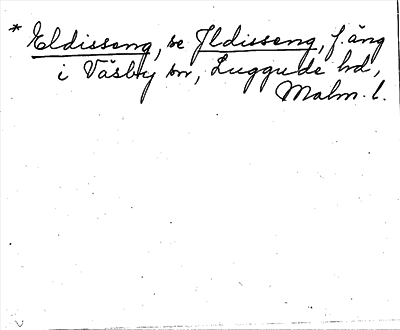 * Eldisseng, se Ildisseng, f. äng
i Väsby sn, Luggude hd,
Malm. l.